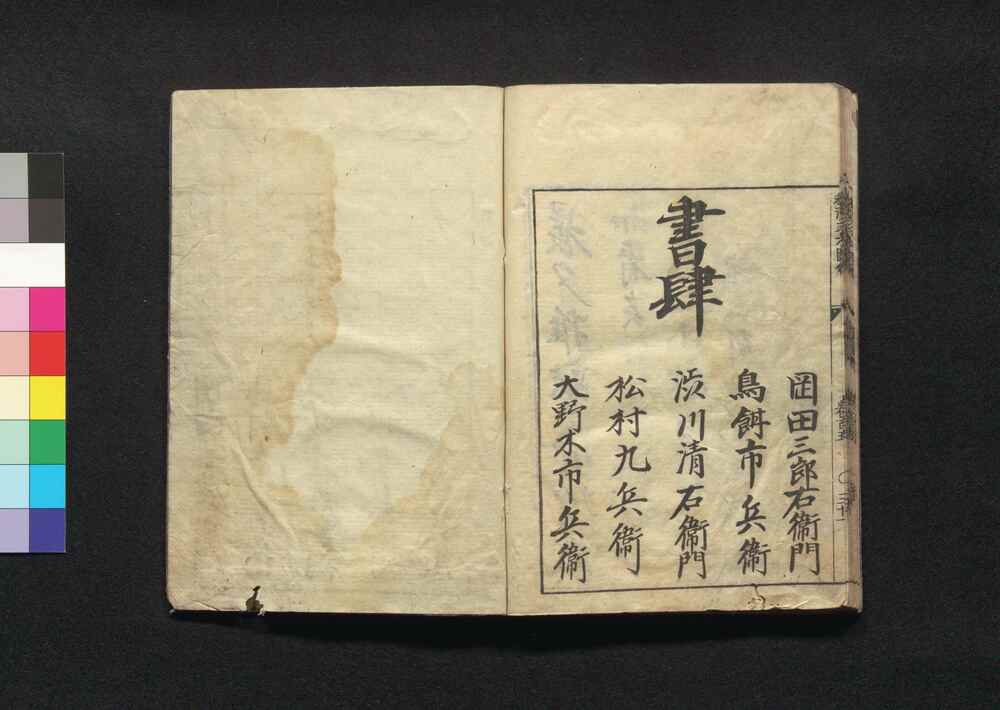 書肆
岡田三郎右衛門
鳥餌市兵衛
渋川清右衛門
松村九兵衛
大野木市兵衛